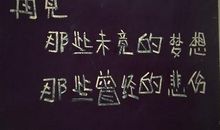 再见
那些未竟的梦想
那些曾经的悲伤